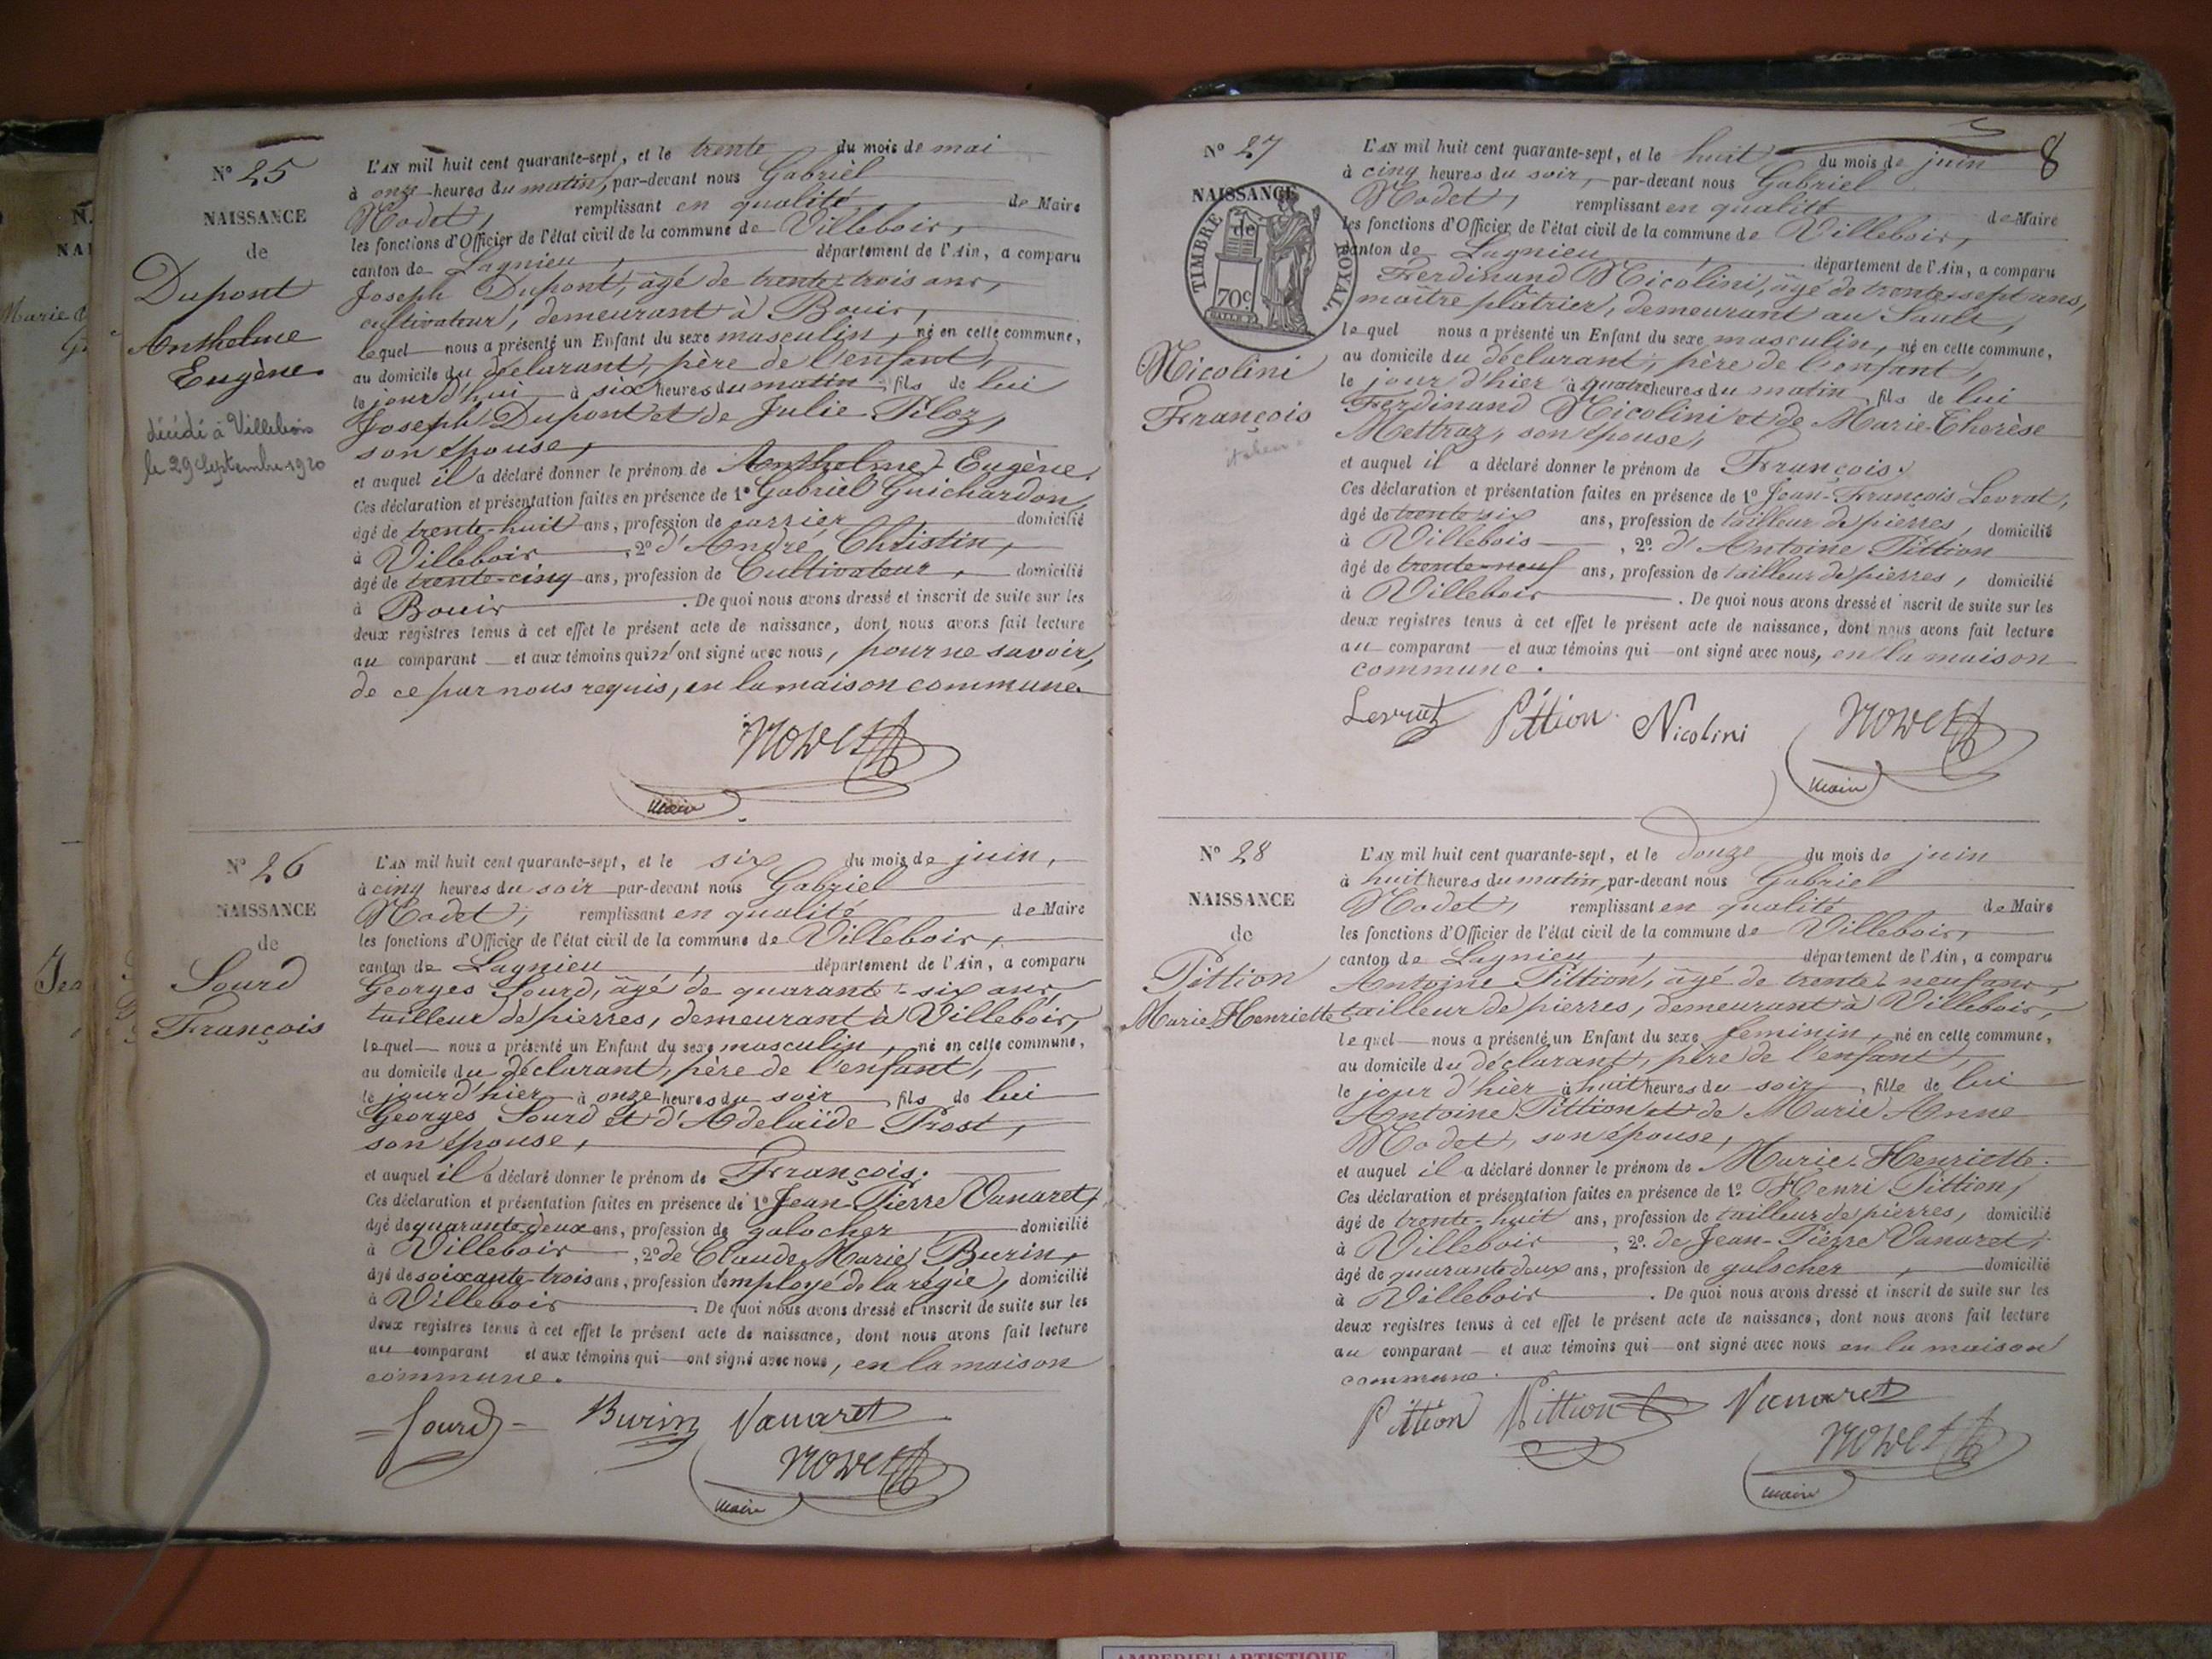 Nº 25
NAISSANCE
de
Dupont
Anthelme
Eugène.
décédé à Villebois
le 29 Septembre 1920
L'AN mil huit cent quarante-sept, et le trente du mois de mai
à onze heures du matin, par-devant nous Gabriel
Nodet, remplissant en qualité de Maire
les fonctions d'Officier de l'état civil de la commune de Villebois,
canton de Lagnieu, département de l'Ain, a comparu
Joseph Dupont, âgé de trente-trois ans,
cultivateur, demeurant à Bouis,
lequel nous a présenté un Enfant du sexe masculin, né en cette commune,
au domicile du déclarant, père de l'enfant,
le jourd'hui à six heures du matin fils de lui
Joseph Dupont et de Julie Piloz,
son épouse,
et auquel il a déclaré donner le prénom de Anthelme Eugène.
Ces déclaration et présentation faites en présence de 1º Gabriel Guichardon,
âgé de trente-huit ans, profession de carrier domicilié
à Villebois, 2º d'André Christin,
âgé de trente-cinq ans, profession de Cultivateur, domicilié
à Bouis. De quoi nous avons dressé et inscrit de suite sur les
deux registres tenus à cet effet le présent acte de naissance, dont nous avons fait lecture
au comparant et aux témoins qui n'ont signé avec nous, pour ne savoir,
de ce par nous requis, en la maison commune.
Nodet
Maire
Nº 26
NAISSANCE
de
Sourd
François
L'AN mil huit cent quarante-sept, et le six du mois de juin,
à cinq heures du soir par-devant nous Gabriel
Nodet, remplissant en qualité de Maire
les fonctions d'Officier de l'état civil de la commune de Villebois,
canton de Lagnieu, département de l'Ain, a comparu
Georges Sourd, âgé de quarante-six ans,
tailleur de pierres, demeurant à Villebois,
lequel nous a présenté un Enfant du sexe masculin, né en cette commune,
au domicile du déclarant, père de l'enfant,
le jour d'hier à onze heures du soir, fils de lui
Georges Sourd et d'Adelaïde Prost,
son épouse,
et auquel il a déclaré donner le prénom de François.
Ces déclaration et présentation faites en présence de 1º Jean-Pierre Vanaret,
âgé de quarante-deux ans, profession de galocher domicilié
à Villebois, 2º de Claude Marie Burin,
âgé de soixante-trois ans, profession d'employé de la régie, domicilié
à Villebois. De quoi nous avons dressé et inscrit de suite sur les
deux registres tenus à cet effet le présent acte de naissance, dont nous avons fait lecture
au comparant et aux témoins qui ont signé avec nous, en la maison
commune.
Sourd Burin Vanaret
Nodet
Maire
8
Nº 27
NAISSANCE
de
TIMBRE ROYAL.
70c
Nicolini
François
italien
L'AN mil huit cent quarante-sept, et le huit du mois de juin
à cinq heures du soir, par-devant nous Gabriel
Nodet, remplissant en qualité de Maire
les fonctions d'Officier de l'état civil de la commune de Villebois,
canton de Lagnieu, département de l'Ain, a comparu
Ferdinand Nicolini, âgé de trente-sept ans,
maître plâtrier, demeurant au Sault,
lequel nous a présenté un Enfant du sexe masculin, né en cette commune,
au domicile du déclarant, père de l'enfant,
le jour d'hier à quatre heures du matin fils de lui
Ferdinand Nicolini et de Marie-Therèse
Mettraz, son épouse,
et auquel il a déclaré donner le prénom de François.
Ces déclaration et présentation faites en présence de 1º Jean-François Levrat,
âgé de trente six ans, profession de tailleur de pierres, domicilié
à Villebois, 2º. d'Antoine Pittion
âgé de trente-neuf ans, profession de tailleur de pierres, domicilié
à Villebois. De quoi nous avons dressé et inscrit de suite sur les
deux registres tenus à cet effet le présent acte de naissance, dont nous avons fait lecture
au comparant et aux témoins qui ont signé avec nous, en la maison
commune.
Levrat Pittion Nicolini Nodet
Maire
Nº 28
NAISSANCE
de
Pittion
Marie Henriette
L'AN mil huit cent quarante-sept, et le douze du mois de juin
à huit heures du matin, par-devant nous Gabriel
Nodet, remplissant en qualité de Maire
les fonctions d'Officier de l'état civil de la commune de Villebois,
canton de Lagnieu, département de l'Ain, a comparu
Antoine Pittion, âgé de trente-neuf ans,
tailleur de pierres, demeurant à Villebois,
lequel nous a présenté un Enfant du sexe feminin, né en cette commune,
au domicile du déclarant, père de l'enfant,
le jour d'hier à huit heures du soir, fille de lui
Antoine Pittion et de Marie Anne
Nodet, son épouse,
et auquel il a déclaré donner le prénom de Marie-Henriette.
Ces déclaration et présentation faites en présence de 1º. Henri Pittion,
âgé de trente-huit ans, profession de tailleur de pierres, domicilié
à Villebois, 2º. de Jean-Pierre Vanaret,
âgé de quarante deux ans, profession de galocher, domicilié
à Villebois. De quoi nous avons dressé et inscrit de suite sur les
deux registres tenus à cet effet le présent acte de naissance, dont nous avons fait lecture
au comparant et aux témoins qui ont signé avec nous en la maison
commune.
Pittion Pittion Vanaret
Nodet
Maire
AMBERIEU ARTISTIQUE